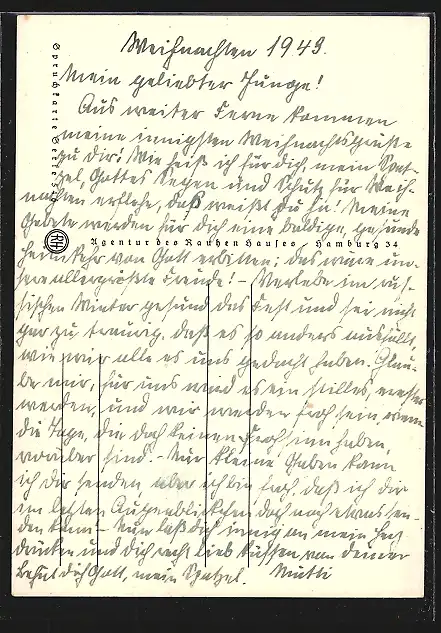 Weihnachten 1949.
Mein geliebter Junge!
Aus weiter Ferne kommen
meine innigsten Weihnachtsgrüße
zu dir! Wie heiß ich für dich, mein Spat-
zel, Gottes Segen und Schutz für Weih-
nachten erflehe, daß weißt du ja! Meine
Gebete werden für dich eine baldige, gesunde
Heimkehr von Gott erbitten; das wäre un-
sere allergrößte Freude! - Verlebe im rus-
sischen Winter gesund das Fest und sei nicht
gar zu traurig, daß es so anders ausfällt,
wie wir alle es uns gedacht haben. Glau-
be mir, für uns wird es ein stilles, ernstes
werden, und wir werden froh sein wenn
die Tage, die doch keinen Frohsinn haben,
vorüber sind. - Nur kleine Gaben kann
ich dir senden aber ich bin froh, daß ich dir
im letzten Augenblickchen doch noch etwas sen-
den kann - Nun laß dich innig an mein Herz
drücken und dich recht lieb küssen von deiner
Behüt dich Gott, mein Spatzel. Mutti
Spruchkarte Serie
Agentur des Rauhen Hauses, Hamburg 34